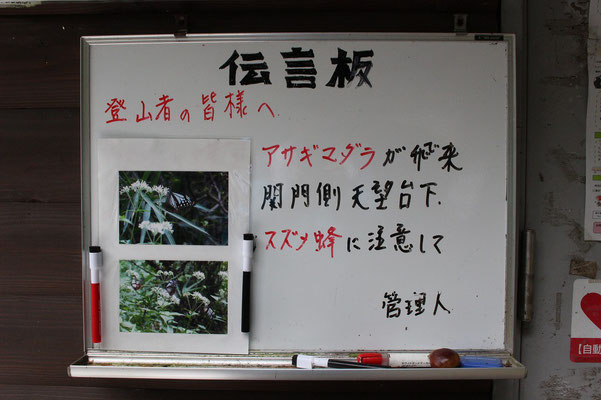 伝言板
登山者の皆様へ
アサギマダラが飛来
関門側天望台下.
スズメ蜂に注意して
管理人
【自動